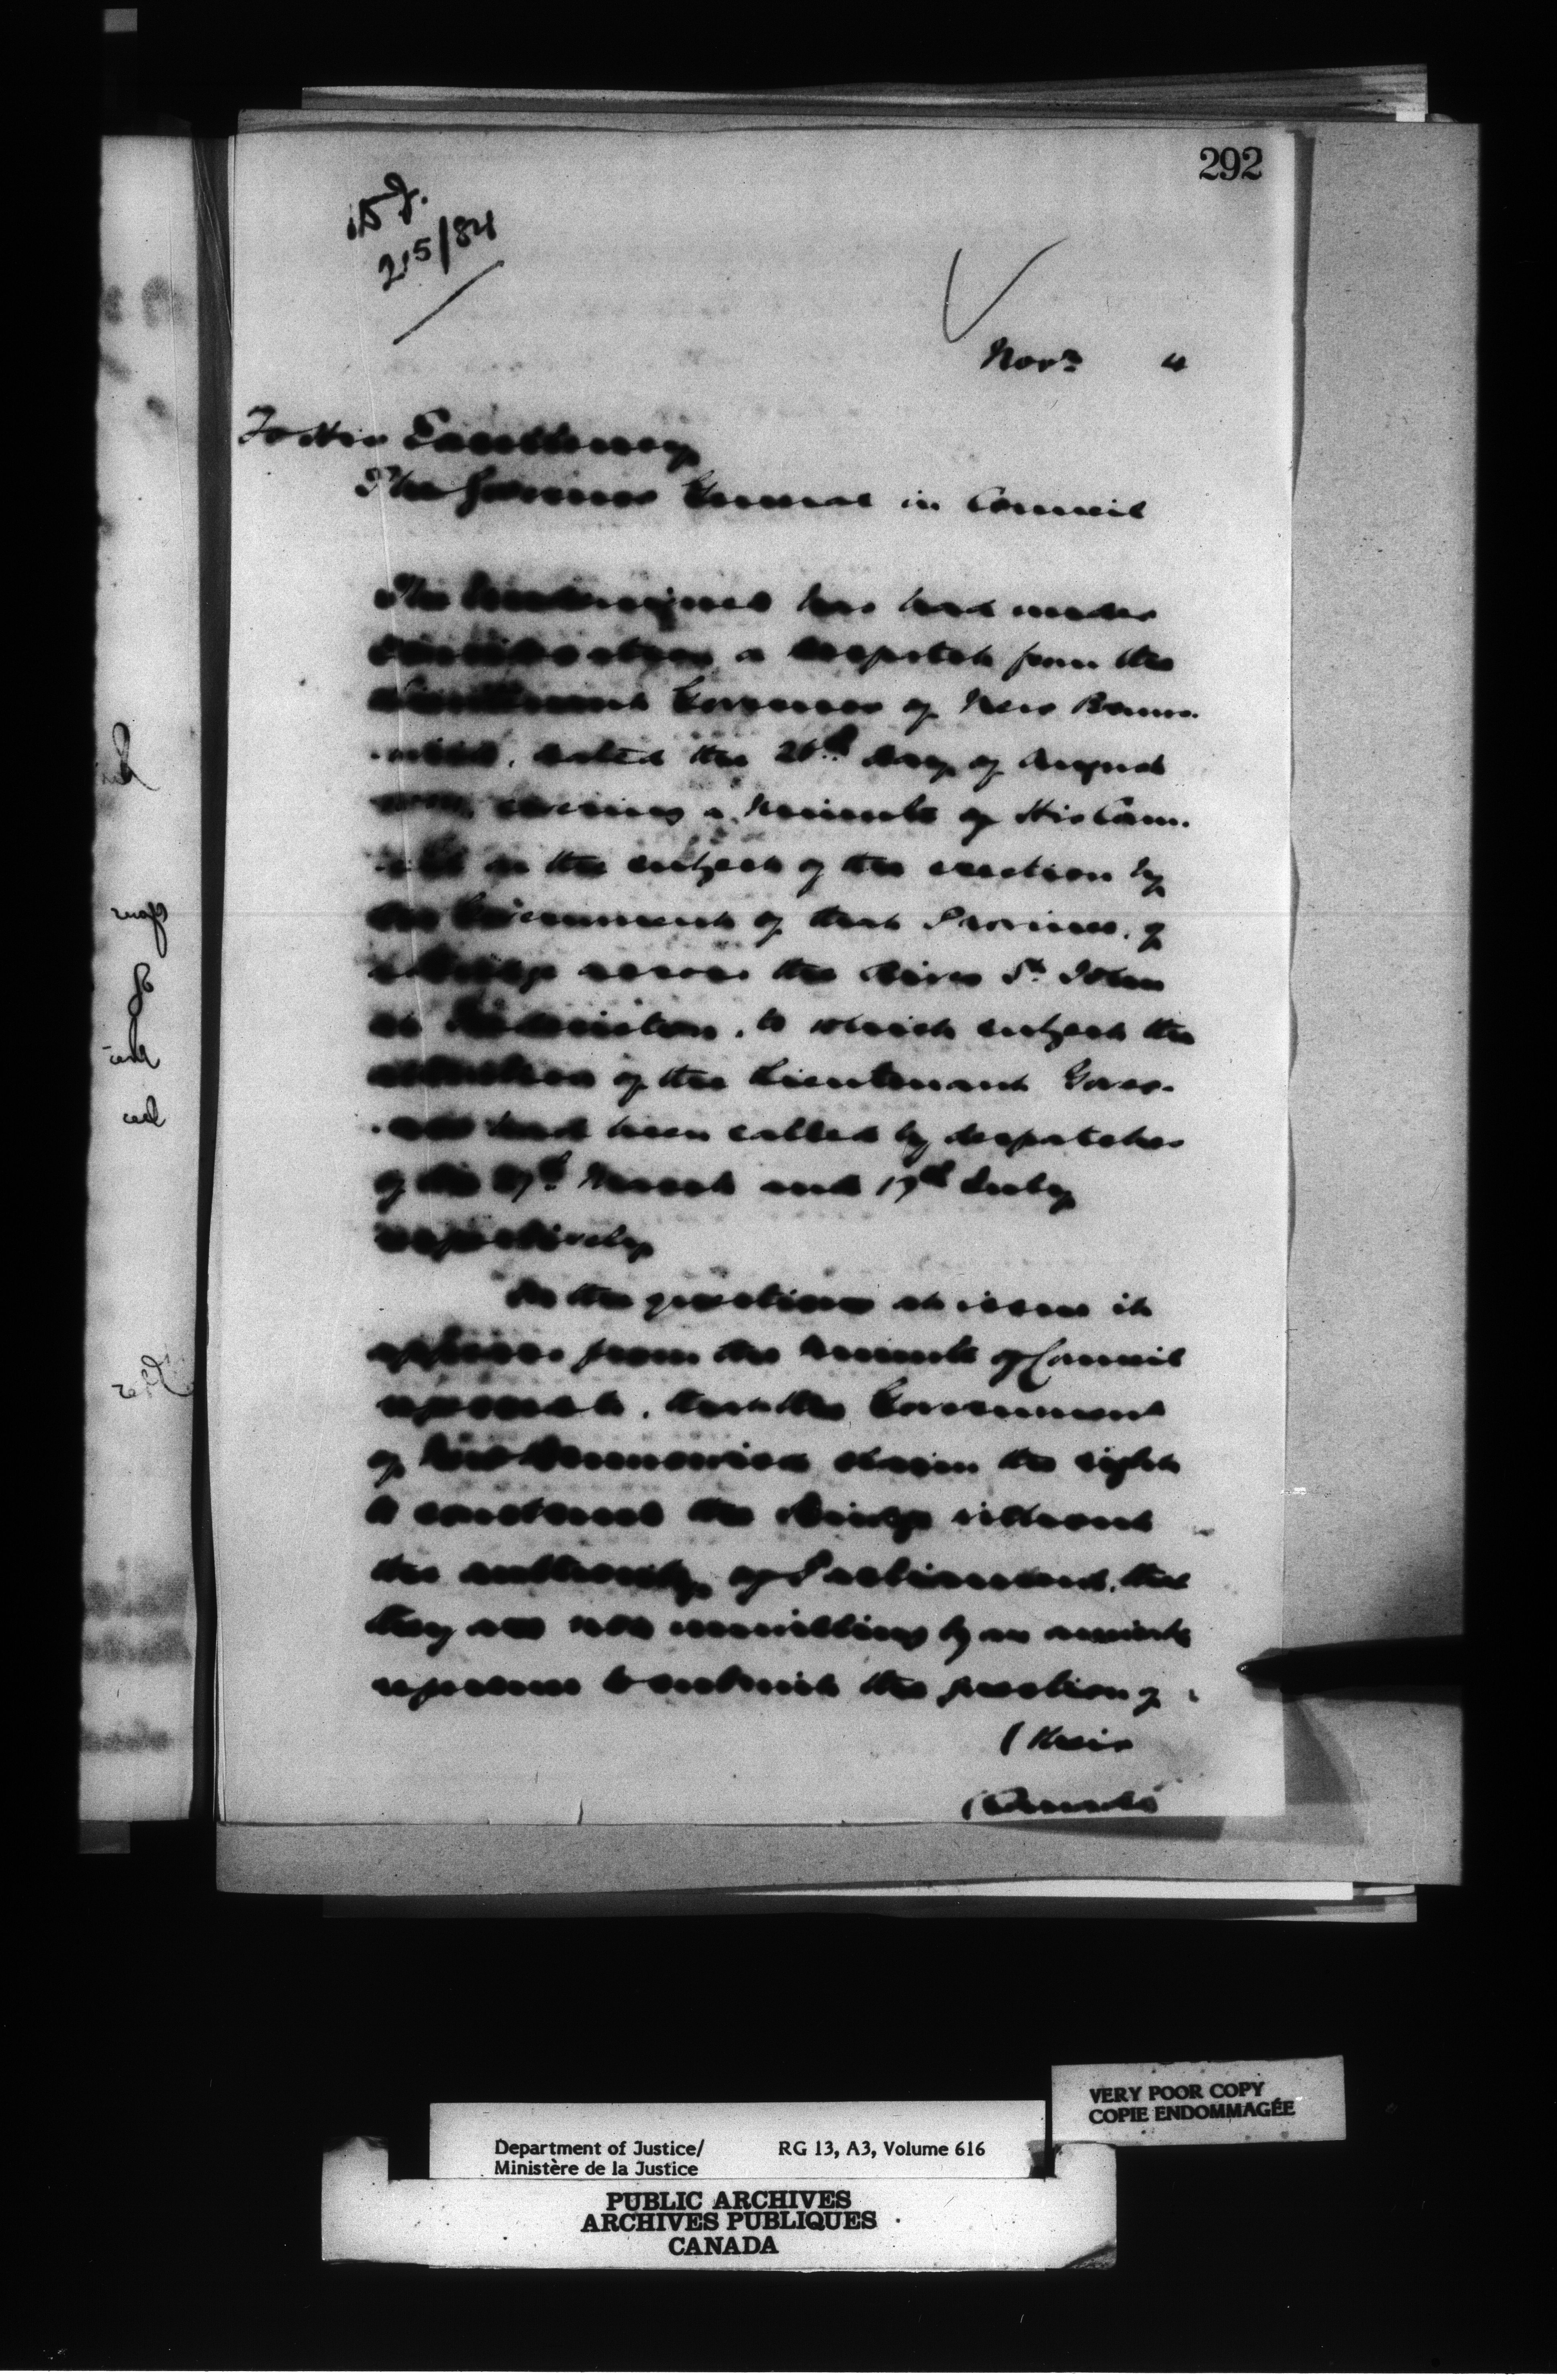 292
215/84
Novr 4
To His Excellency
The Governor General in Council
The Undersigned has had under
consideration a despatch from the
Lieutenant Governor of New Bruns-
-wick, dated the 26th day of August
covering a Minute of His Coun-
-cil on the subject of the erection by
the Government of that Province, of
a bridge across the River St. John
at Fredericton, to which subject the
attention of the Lieutenant Gover-
-nor had been called by despatches
of the 27th March and 17th July
respectively
On the questions at issue it
appears from the Minute of Council
that the Government
of New Brunswick claim the right
to construct the bridge without
the authority of Parliament, tho'
they are not unwilling by an
to submit the question of
(their
VERY POOR COPY
COPIE ENDOMMAGÉE
Department of Justice/ RG 13, A3, Volume 616
Ministère de la Justice
PUBLIC ARCHIVES
ARCHIVES PUBLIQUES
CANADA